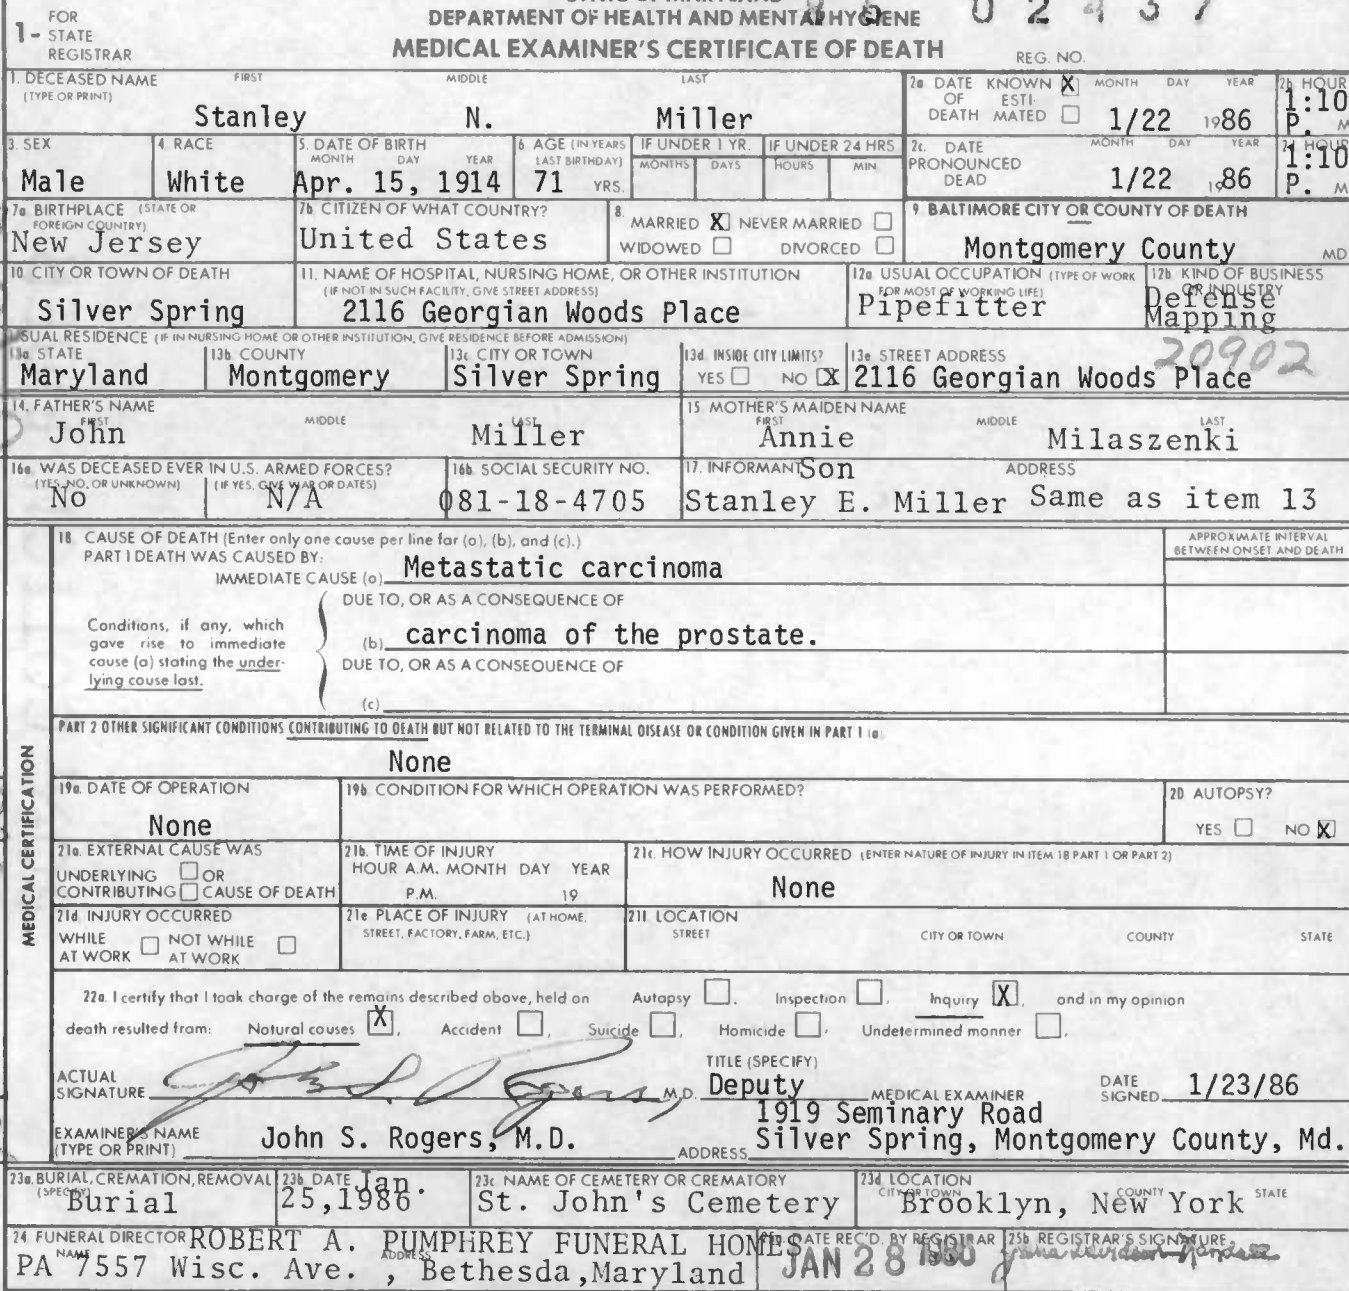 FOR
1- STATE
REGISTRAR
DEPARTMENT OF HEALTH AND MENTAL HYGIENE
MEDICAL EXAMINER'S CERTIFICATE OF DEATH
REG. NO.
1. DECEASED NAME FIRST MIDDLE LAST
(TYPE OR PRINT)
Stanley N. Miller
2a DATE KNOWN X MONTH DAY YEAR 2b HOUR
OF ESTI-
DEATH MATED 1/22 1986 1:10 P. M
3. SEX
Male
4. RACE
White
5. DATE OF BIRTH
MONTH DAY YEAR
Apr. 15, 1914
6 AGE (IN YEARS
LAST BIRTHDAY)
71 YRS.
IF UNDER 1 YR.
MONTHS DAYS
IF UNDER 24 HRS
HOURS MIN.
2c. DATE MONTH DAY YEAR HOUR
PRONOUNCED
DEAD 1/22 1986 1:10 P. M
7a BIRTHPLACE (STATE OR
FOREIGN COUNTRY)
New Jersey
7b. CITIZEN OF WHAT COUNTRY?
United States
8.
MARRIED X NEVER MARRIED
WIDOWED DIVORCED
9 BALTIMORE CITY OR COUNTY OF DEATH
Montgomery County MD
10 CITY OR TOWN OF DEATH
Silver Spring
11. NAME OF HOSPITAL, NURSING HOME, OR OTHER INSTITUTION
(IF NOT IN SUCH FACILITY, GIVE STREET ADDRESS)
2116 Georgian Woods Place
12a USUAL OCCUPATION (TYPE OF WORK
FOR MOST OF WORKING LIFE)
Pipefitter
12b KIND OF BUSINESS
OR INDUSTRY
Defense
Mapping
USUAL RESIDENCE (IF IN NURSING HOME OR OTHER INSTITUTION, GIVE RESIDENCE BEFORE ADMISSION)
13a STATE
Maryland
13b COUNTY
Montgomery
13c CITY OR TOWN
Silver Spring
13d INSIDE CITY LIMITS?
YES NO X
13e STREET ADDRESS
20902
2116 Georgian Woods Place
14. FATHER'S NAME
FIRST MIDDLE LAST
John Miller
15 MOTHER'S MAIDEN NAME
FIRST MIDDLE LAST
Annie Milaszenki
16a WAS DECEASED EVER IN U.S. ARMED FORCES?
(YES, NO, OR UNKNOWN) (IF YES, GIVE WAR OR DATES)
No N/A
16b SOCIAL SECURITY NO.
081-18-4705
17. INFORMANT Son ADDRESS
Stanley E. Miller Same as item 13
MEDICAL CERTIFICATION
18 CAUSE OF DEATH (Enter only one cause per line for (a), (b), and (c).)
PART I DEATH WAS CAUSED BY:
IMMEDIATE CAUSE (a) Metastatic carcinoma
APPROXIMATE INTERVAL
BETWEEN ONSET AND DEATH
DUE TO, OR AS A CONSEQUENCE OF
Conditions, if any, which
gave rise to immediate
cause (a) stating the under-
lying cause last.
(b) carcinoma of the prostate.
DUE TO, OR AS A CONSEQUENCE OF
(c)
PART 2 OTHER SIGNIFICANT CONDITIONS CONTRIBUTING TO DEATH BUT NOT RELATED TO THE TERMINAL DISEASE OR CONDITION GIVEN IN PART 1 (a)
None
19a. DATE OF OPERATION
None
19b CONDITION FOR WHICH OPERATION WAS PERFORMED?
20 AUTOPSY?
YES NO X
21a. EXTERNAL CAUSE WAS
UNDERLYING OR
CONTRIBUTING CAUSE OF DEATH
21b. TIME OF INJURY
HOUR A.M. MONTH DAY YEAR
P.M. 19
21c. HOW INJURY OCCURRED (ENTER NATURE OF INJURY IN ITEM 18 PART 1 OR PART 2)
None
21d INJURY OCCURRED
WHILE AT WORK NOT WHILE AT WORK
21e PLACE OF INJURY (AT HOME,
STREET, FACTORY, FARM, ETC.)
21f LOCATION
STREET CITY OR TOWN COUNTY STATE
22a. I certify that I took charge of the remains described above, held on Autopsy , Inspection , Inquiry X , and in my opinion
death resulted from: Natural causes X , Accident , Suicide , Homicide , Undetermined manner .
ACTUAL
SIGNATURE John S. Rogers, M.D.
TITLE (SPECIFY)
Deputy MEDICAL EXAMINER
DATE
SIGNED 1/23/86
EXAMINER'S NAME
(TYPE OR PRINT) John S. Rogers, M.D.
1919 Seminary Road
ADDRESS Silver Spring, Montgomery County, Md.
23a. BURIAL, CREMATION, REMOVAL
(SPECIFY)
Burial
23b DATE Jan.
25,1986
23c NAME OF CEMETERY OR CREMATORY
St. John's Cemetery
23d LOCATION
CITY OR TOWN COUNTY STATE
Brooklyn, New York
24 FUNERAL DIRECTOR ROBERT A. PUMPHREY FUNERAL HOMES
NAME ADDRESS
PA 7557 Wisc. Ave. , Bethesda,Maryland
DATE REC'D. BY REGISTRAR
JAN 28
25b REGISTRAR'S SIGNATURE